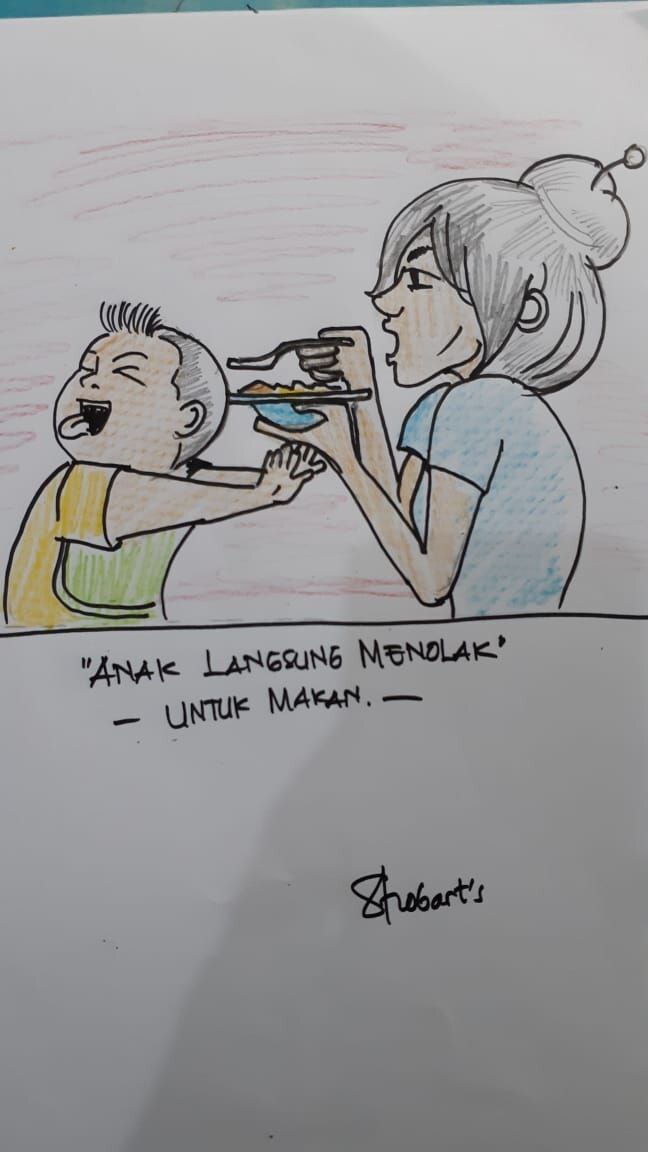 "ANAK LANGSUNG MENOLAK"
- UNTUK MAKAN. -
Shobart's